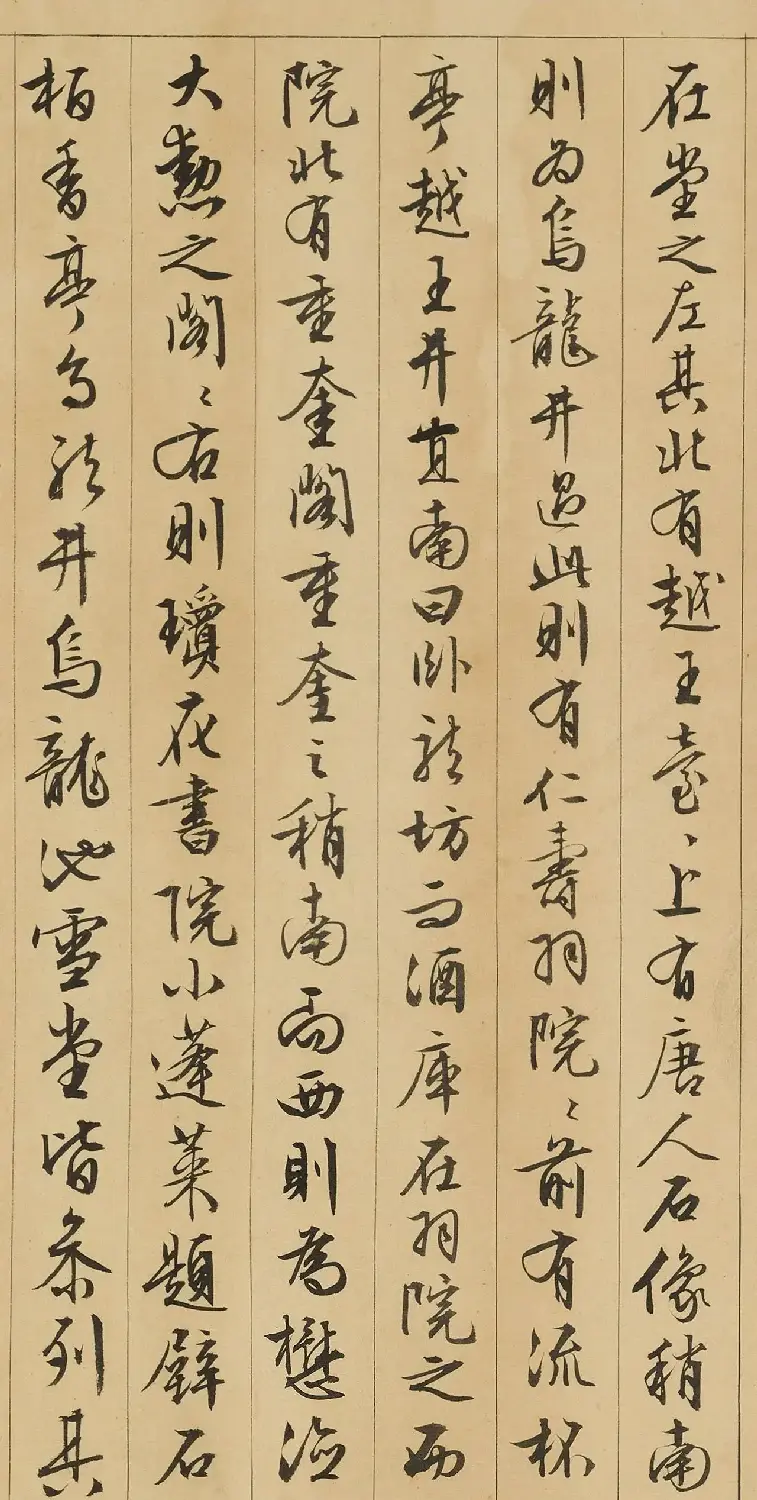 在堂之左其北有越王臺〻上有唐人石像稍南
則为烏龍井過此則有仁壽羽院〻前有流杯
亭越王井直南曰卧龍坊而酒庫在羽院之西
院北有重奎閣重奎之稍南而西則為懋
大勲之閣〻右則瓊花書院小蓬萊題壁石
柏香亭烏龍井烏龍池雪堂皆叅列其